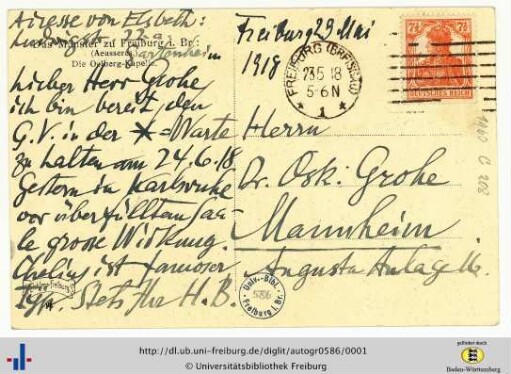 Adresse von Elsbeth:
Ludwigstr. 22a
Das Münster zu Freiburg i. Br.:
(Aeusseres)
Die Oelberg-Kapelle.
Lieber Herr Grohe,
ich bin bereit, den
G.V. in der *=Warte
zu halten am 24.6.18
Gestern in Karlsruhe
vor überfülltem Saa-
le grosse Wirkung.
ist famoser
Typ. Stets Ihr H.B.
Freiburg 23 Mai
1918
FREIBURG (BREISGAU)
23.5.18
5-6 N
* 1 *
7½ 7½
DEUTSCHES REICH
Herrn
Dr. Osk. Grohe
Mannheim
Augusta Anlage
Univ.-Bibl.
Freiburg i. Br.
http://dl.ub.uni-freiburg.de/diglit/autogr0586/0001
© Universitätsbibliothek Freiburg
gefördert durch
Baden-Württemberg